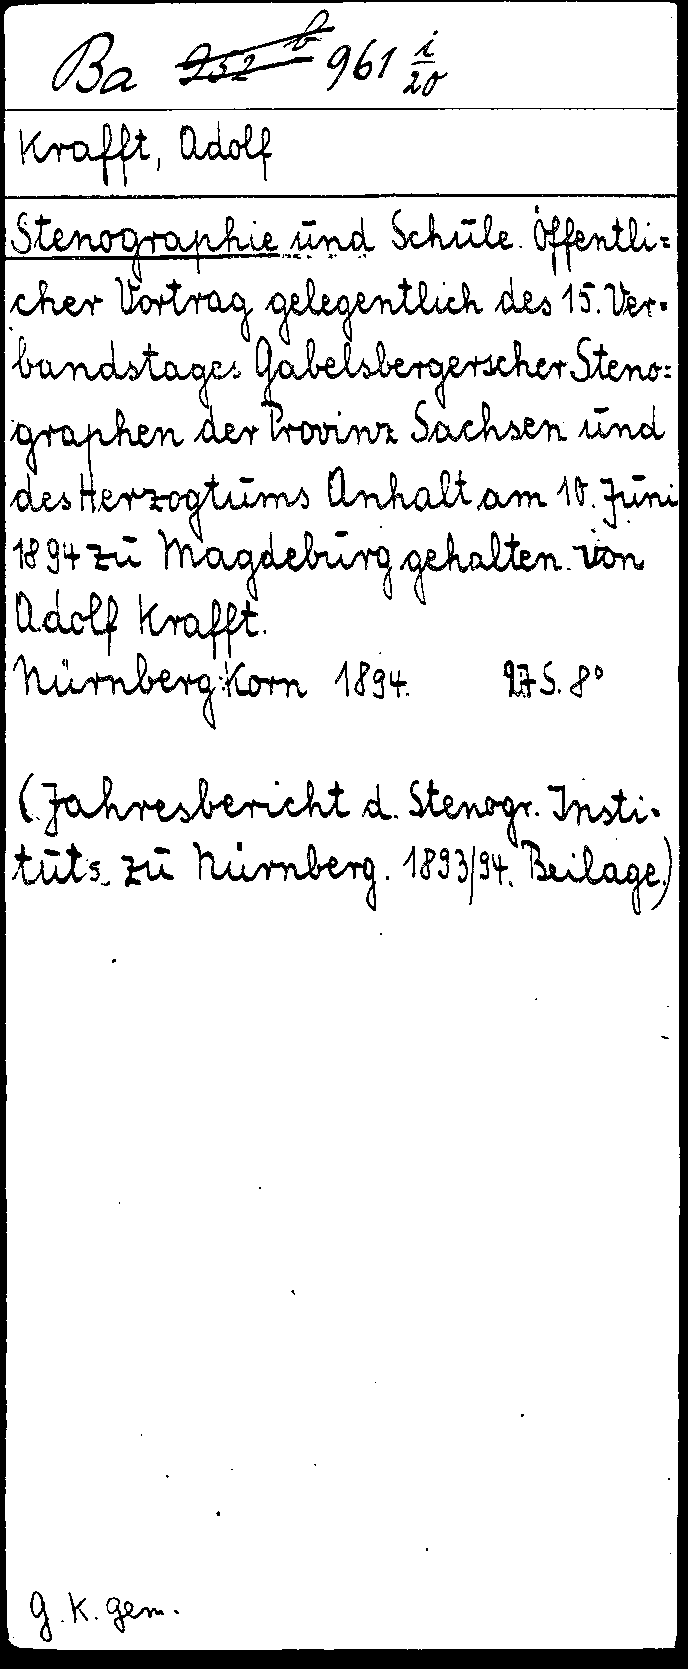 Ba 252 b 961 i/20
Krafft, Adolf
Stenographie und Schule. Öffentli=
cher Vortrag gelegentlich des 15. Ver=
bandstages Gabelsbergerscher Steno=
graphen der Provinz Sachsen und
des Herzogtums Anhalt am 10. Juni
1894 zu Magdeburg gehalten von
Adolf Krafft.
Nürnberg: Korn 1894. 27 S. 8°
(Jahresbericht d. Stenogr. Insti-
tuts zu Nürnberg. 1893/94. Beilage.)
G. K. gem.